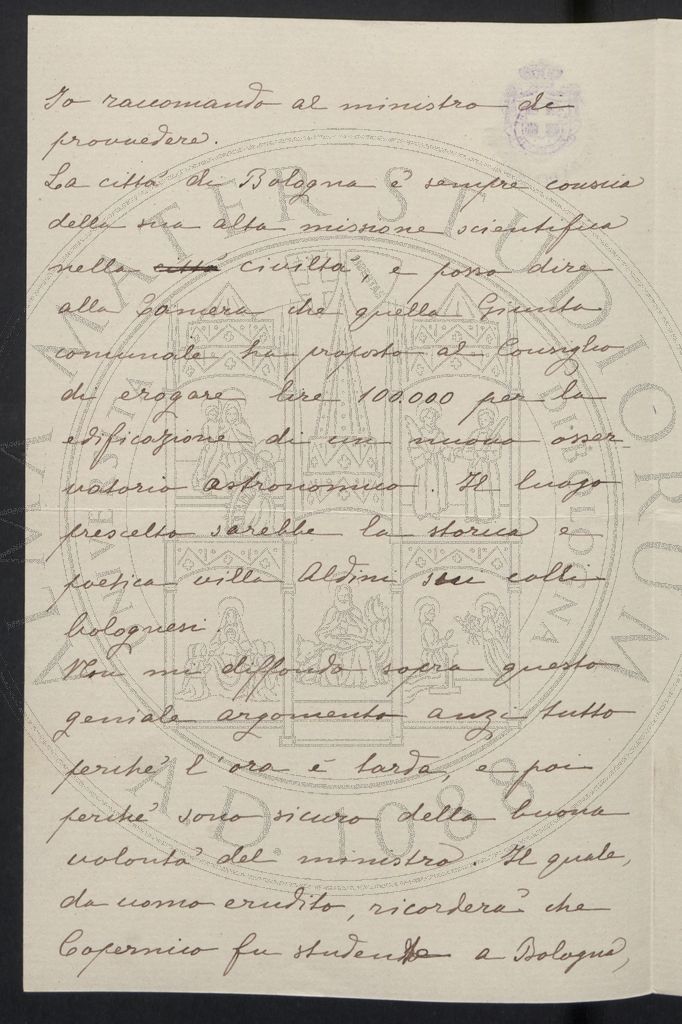 Io raccomando al ministro di
provvedere.
La città di Bologna è sempre conscia
della sua alta missione scientifica
nella città civiltà, e posso dire
alla Camera che quella Giunta
comunale ha proposto al Consiglio
di erogare lire 100.000 per la
edificazione di un nuovo osser-
vatorio astronomico. Il luogo
prescelto sarebbe la storica e
poetica villa Aldini sui colli
bolognesi.
Non mi diffondo sopra questo
geniale argomento anzi tutto
perchè l'ora è tarda, e poi
perchè sono sicuro della buona
volontà del ministro. Il quale,
da uomo erudito, ricorderà che
Copernico fu studente a Bologna,
ALMA MATER STUDIORUM
UNIVERSITÀ DI BOLOGNA
A.D. 1088